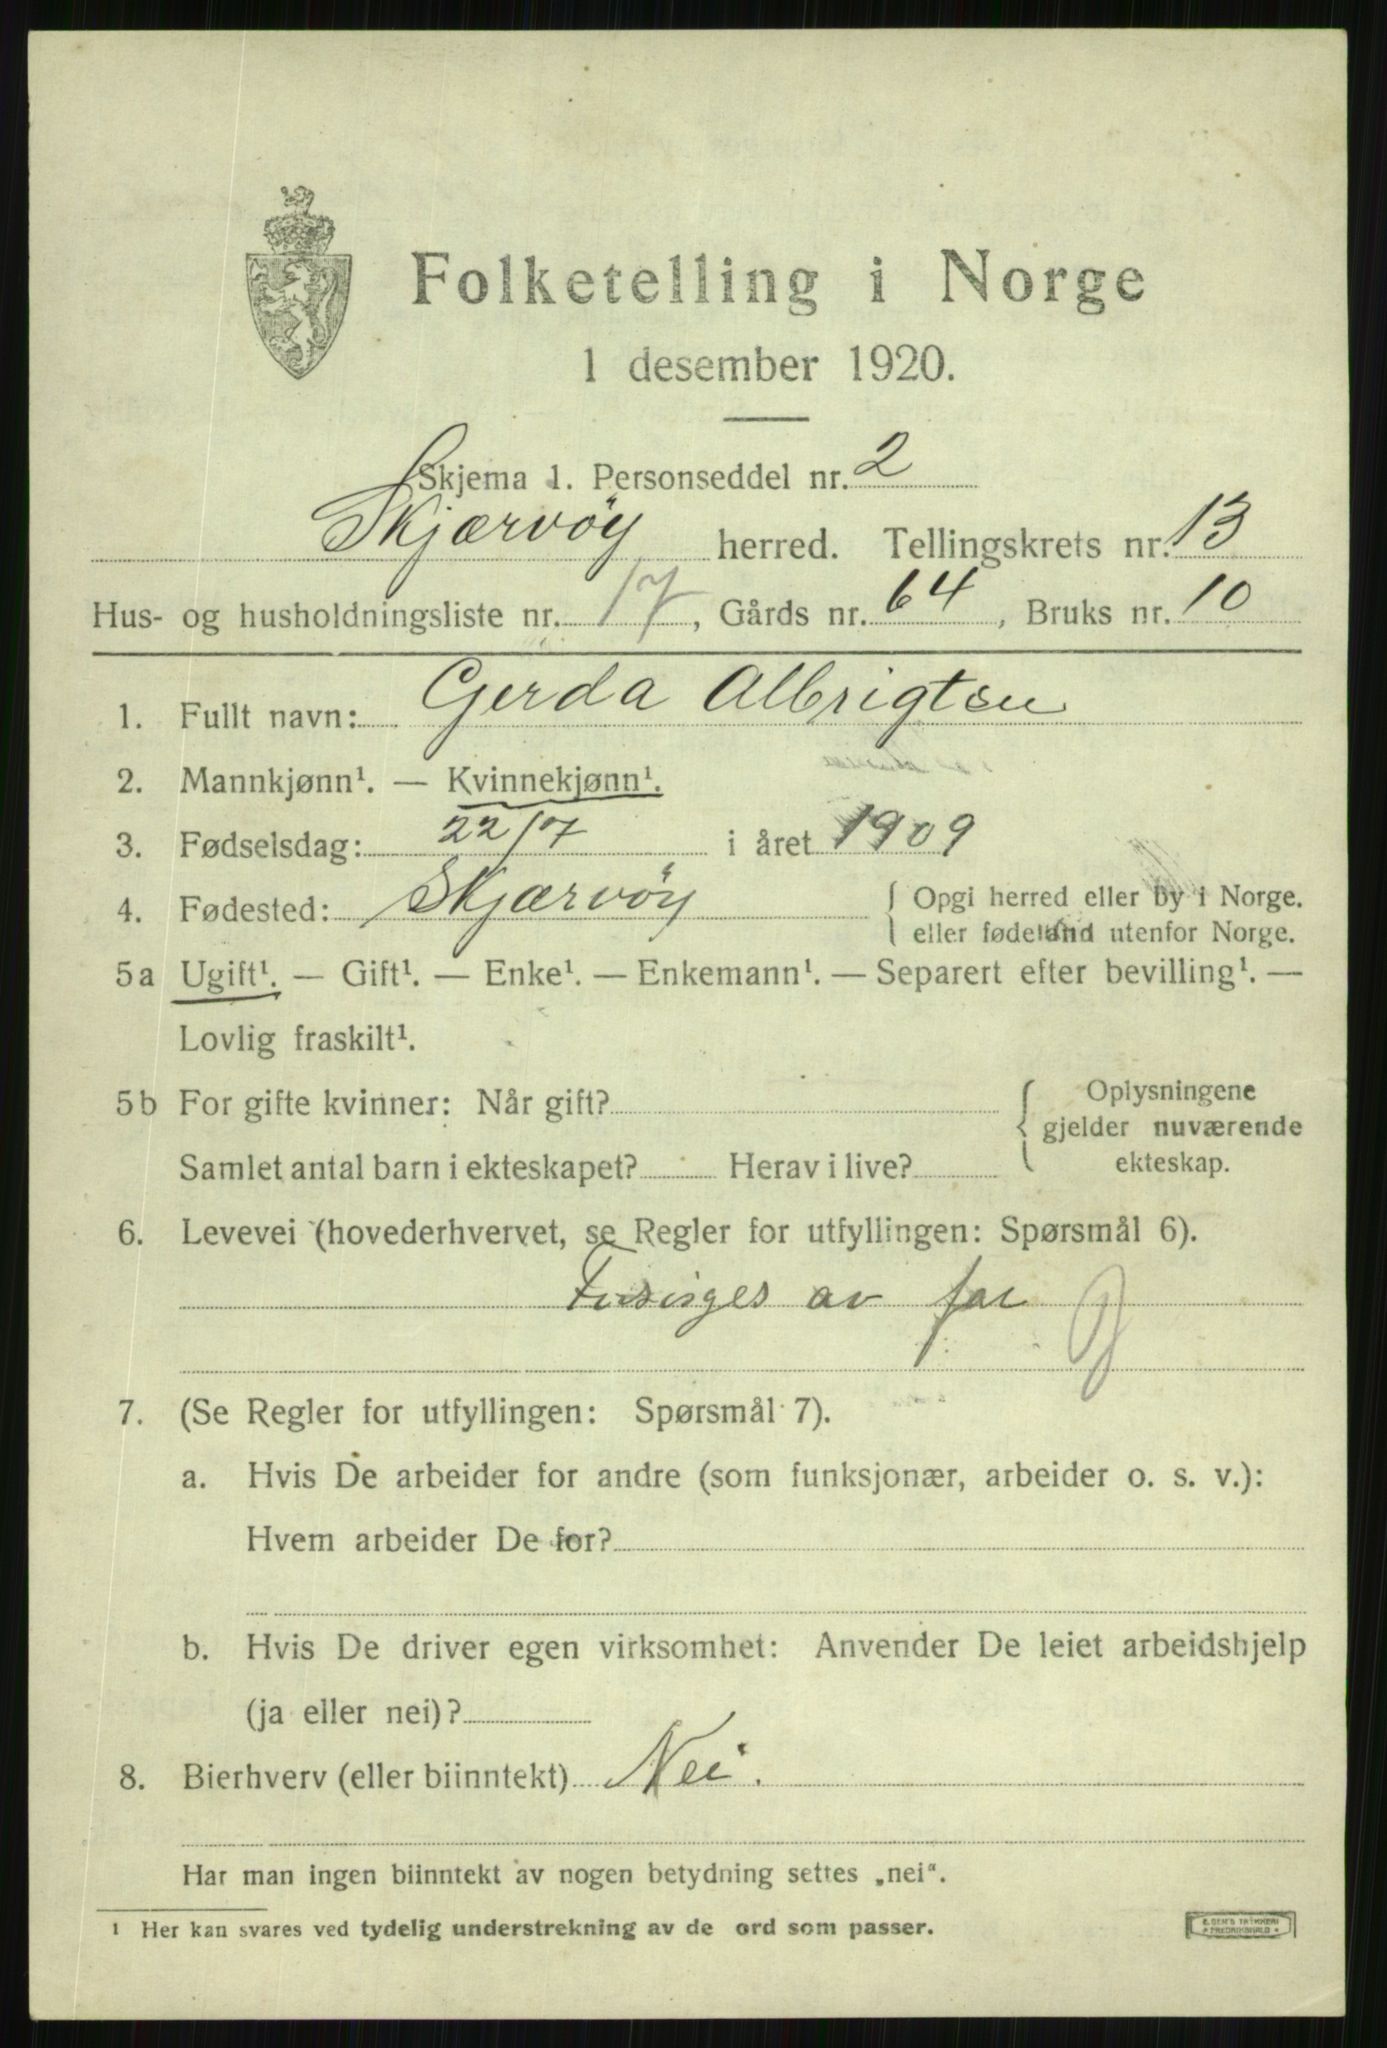 Folketelling i Norge
1 desember 1920.
Skjema 1. Personseddel nr. 2
Skjærvöy herred. Tellingskrets nr. 13
Hus- og husholdningsliste nr. 17, Gårds nr. 64, Bruks nr. 10
1. Fullt navn: Gerda Albrigtsen
2. Mannkjønn¹. — Kvinnekjønn¹.
3. Fødselsdag: 22/7 i året 1909
4. Fødested: Skjærvöy { Opgi herred eller by i Norge.
eller fødeland utenfor Norge.
5a Ugift¹. — Gift¹. — Enke¹. — Enkemann¹. — Separert efter bevilling¹. —
Lovlig fraskilt¹.
5b For gifte kvinner: Når gift? { Oplysningene
gjelder nuværende
Samlet antal barn i ekteskapet? Herav i live? ekteskap.
6. Levevei (hovederhvervet, se Regler for utfyllingen: Spørsmål 6).
av far
7. (Se Regler for utfyllingen: Spørsmål 7).
a. Hvis De arbeider for andre (som funksjonær, arbeider o. s. v.):
Hvem arbeider De for?
b. Hvis De driver egen virksomhet: Anvender De leiet arbeidshjelp
(ja eller nei)?
8. Bierhverv (eller biinntekt) Nei.
Har man ingen biinntekt av nogen betydning settes „nei“.
¹ Her kan svares ved tydelig understrekning av de ord som passer.